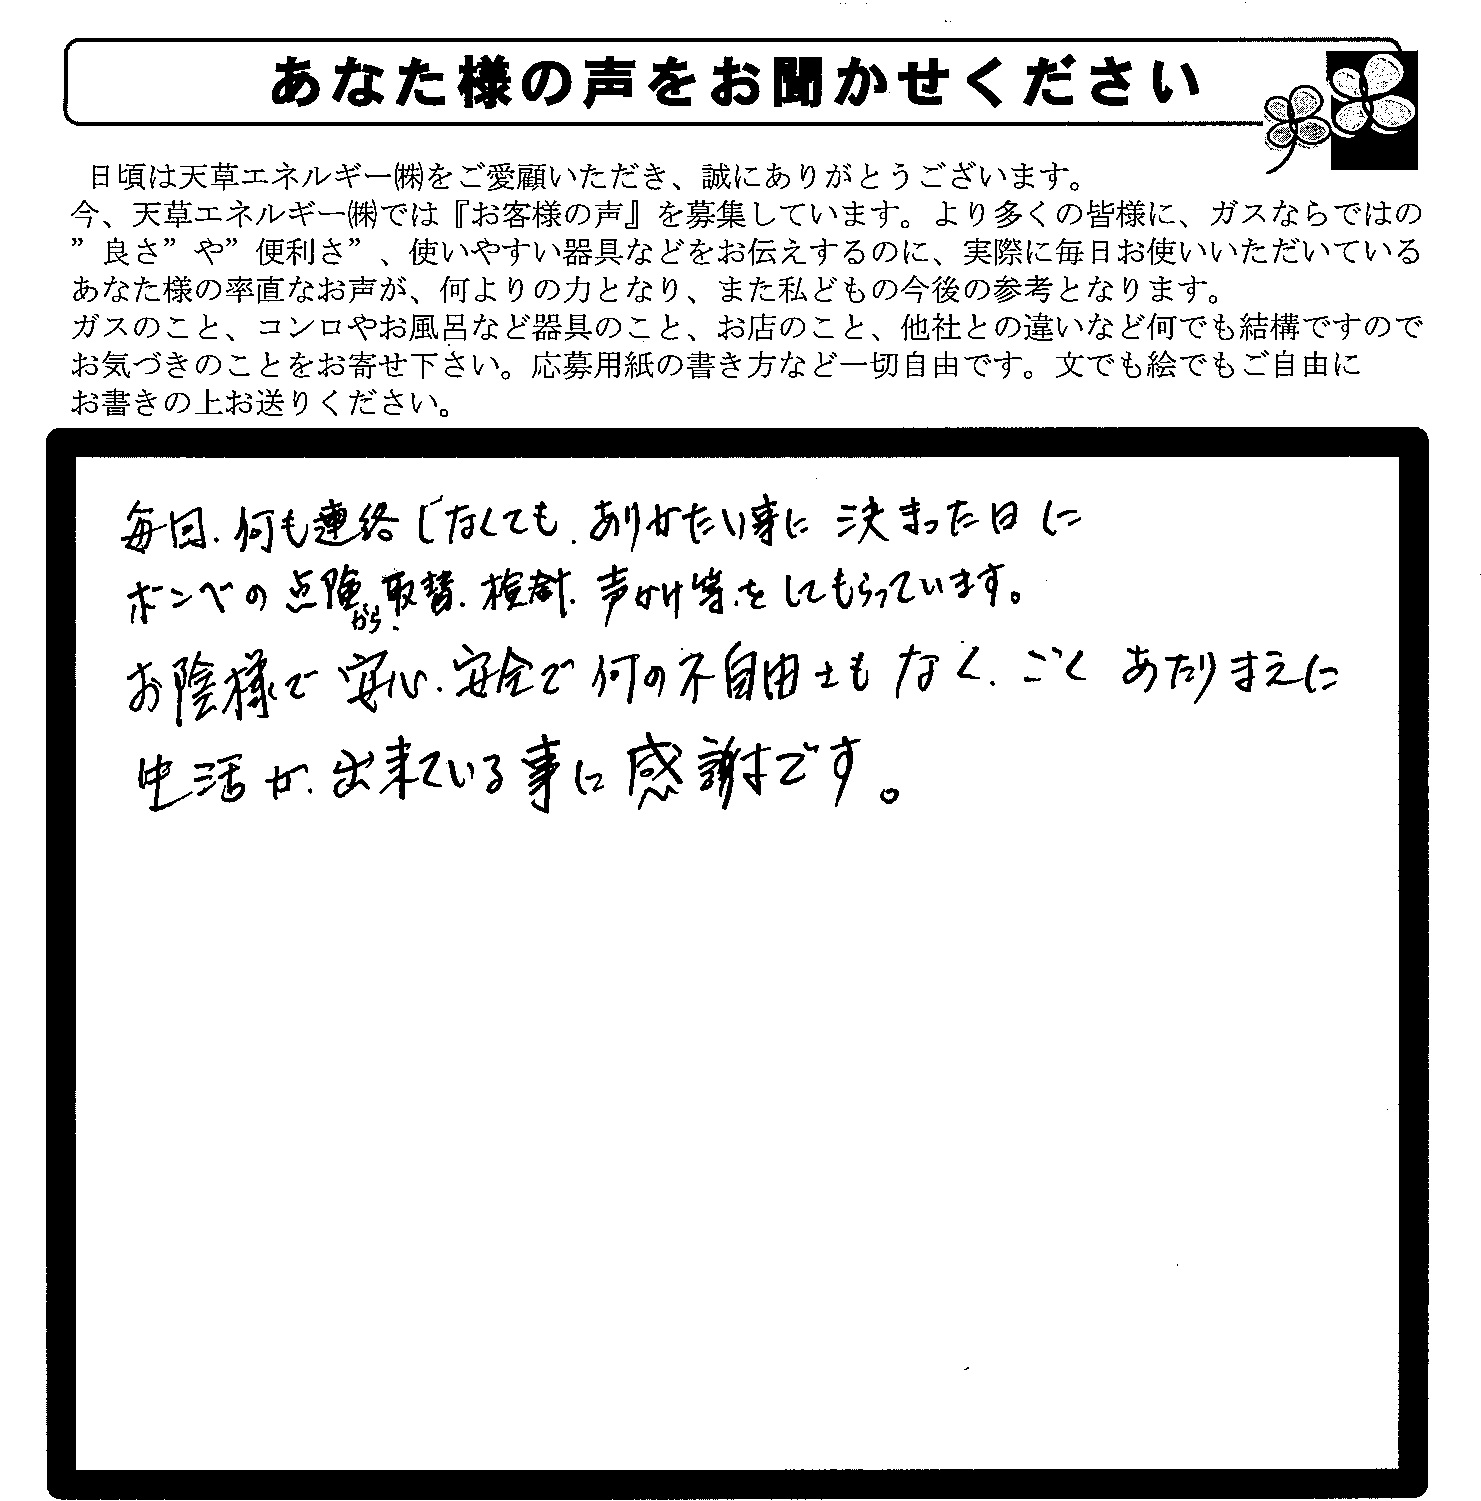 あなた様の声をお聞かせください
日頃は天草エネルギー㈱をご愛顧いただき、誠にありがとうございます。
今、天草エネルギー㈱では『お客様の声』を募集しています。より多くの皆様に、ガスならではの
”良さ”や”便利さ”、使いやすい器具などをお伝えするのに、実際に毎日お使いいただいている
あなた様の率直なお声が、何よりの力となり、また私どもの今後の参考となります。
ガスのこと、コンロやお風呂など器具のこと、お店のこと、他社との違いなど何でも結構ですので
お気づきのことをお寄せ下さい。応募用紙の書き方など一切自由です。文でも絵でもご自由に
お書きの上お送りください。
毎回、何も連絡しなくても、ありがたい事に 決まった日に
ボンベの点険から、取替、検針、声かけ等をしてもらっています。
お陰様で 安心、安全で 何の不自由さもなく、ごく あたりまえに
生活が、出来ている事に感謝です。